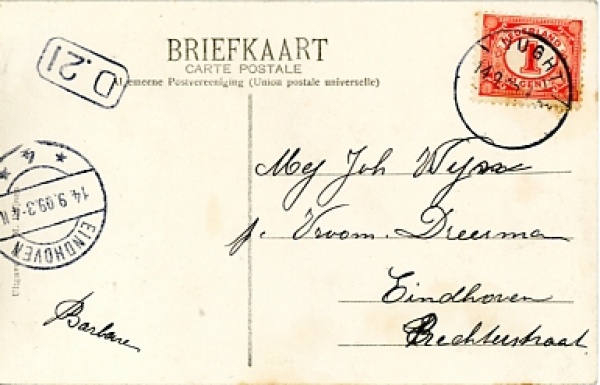 BRIEFKAART
CARTE POSTALE
Algemeene Postvereeniging (Union postale universelle)
D.21
NEDERLAND
1
CENT
VUGHT
14.9.
4
14.9.09.3-4N
EINDHOVEN
Mej Joh Wijsse
p. Vroom. Dreesman
Eindhoven
Rechtestraat
Barbara